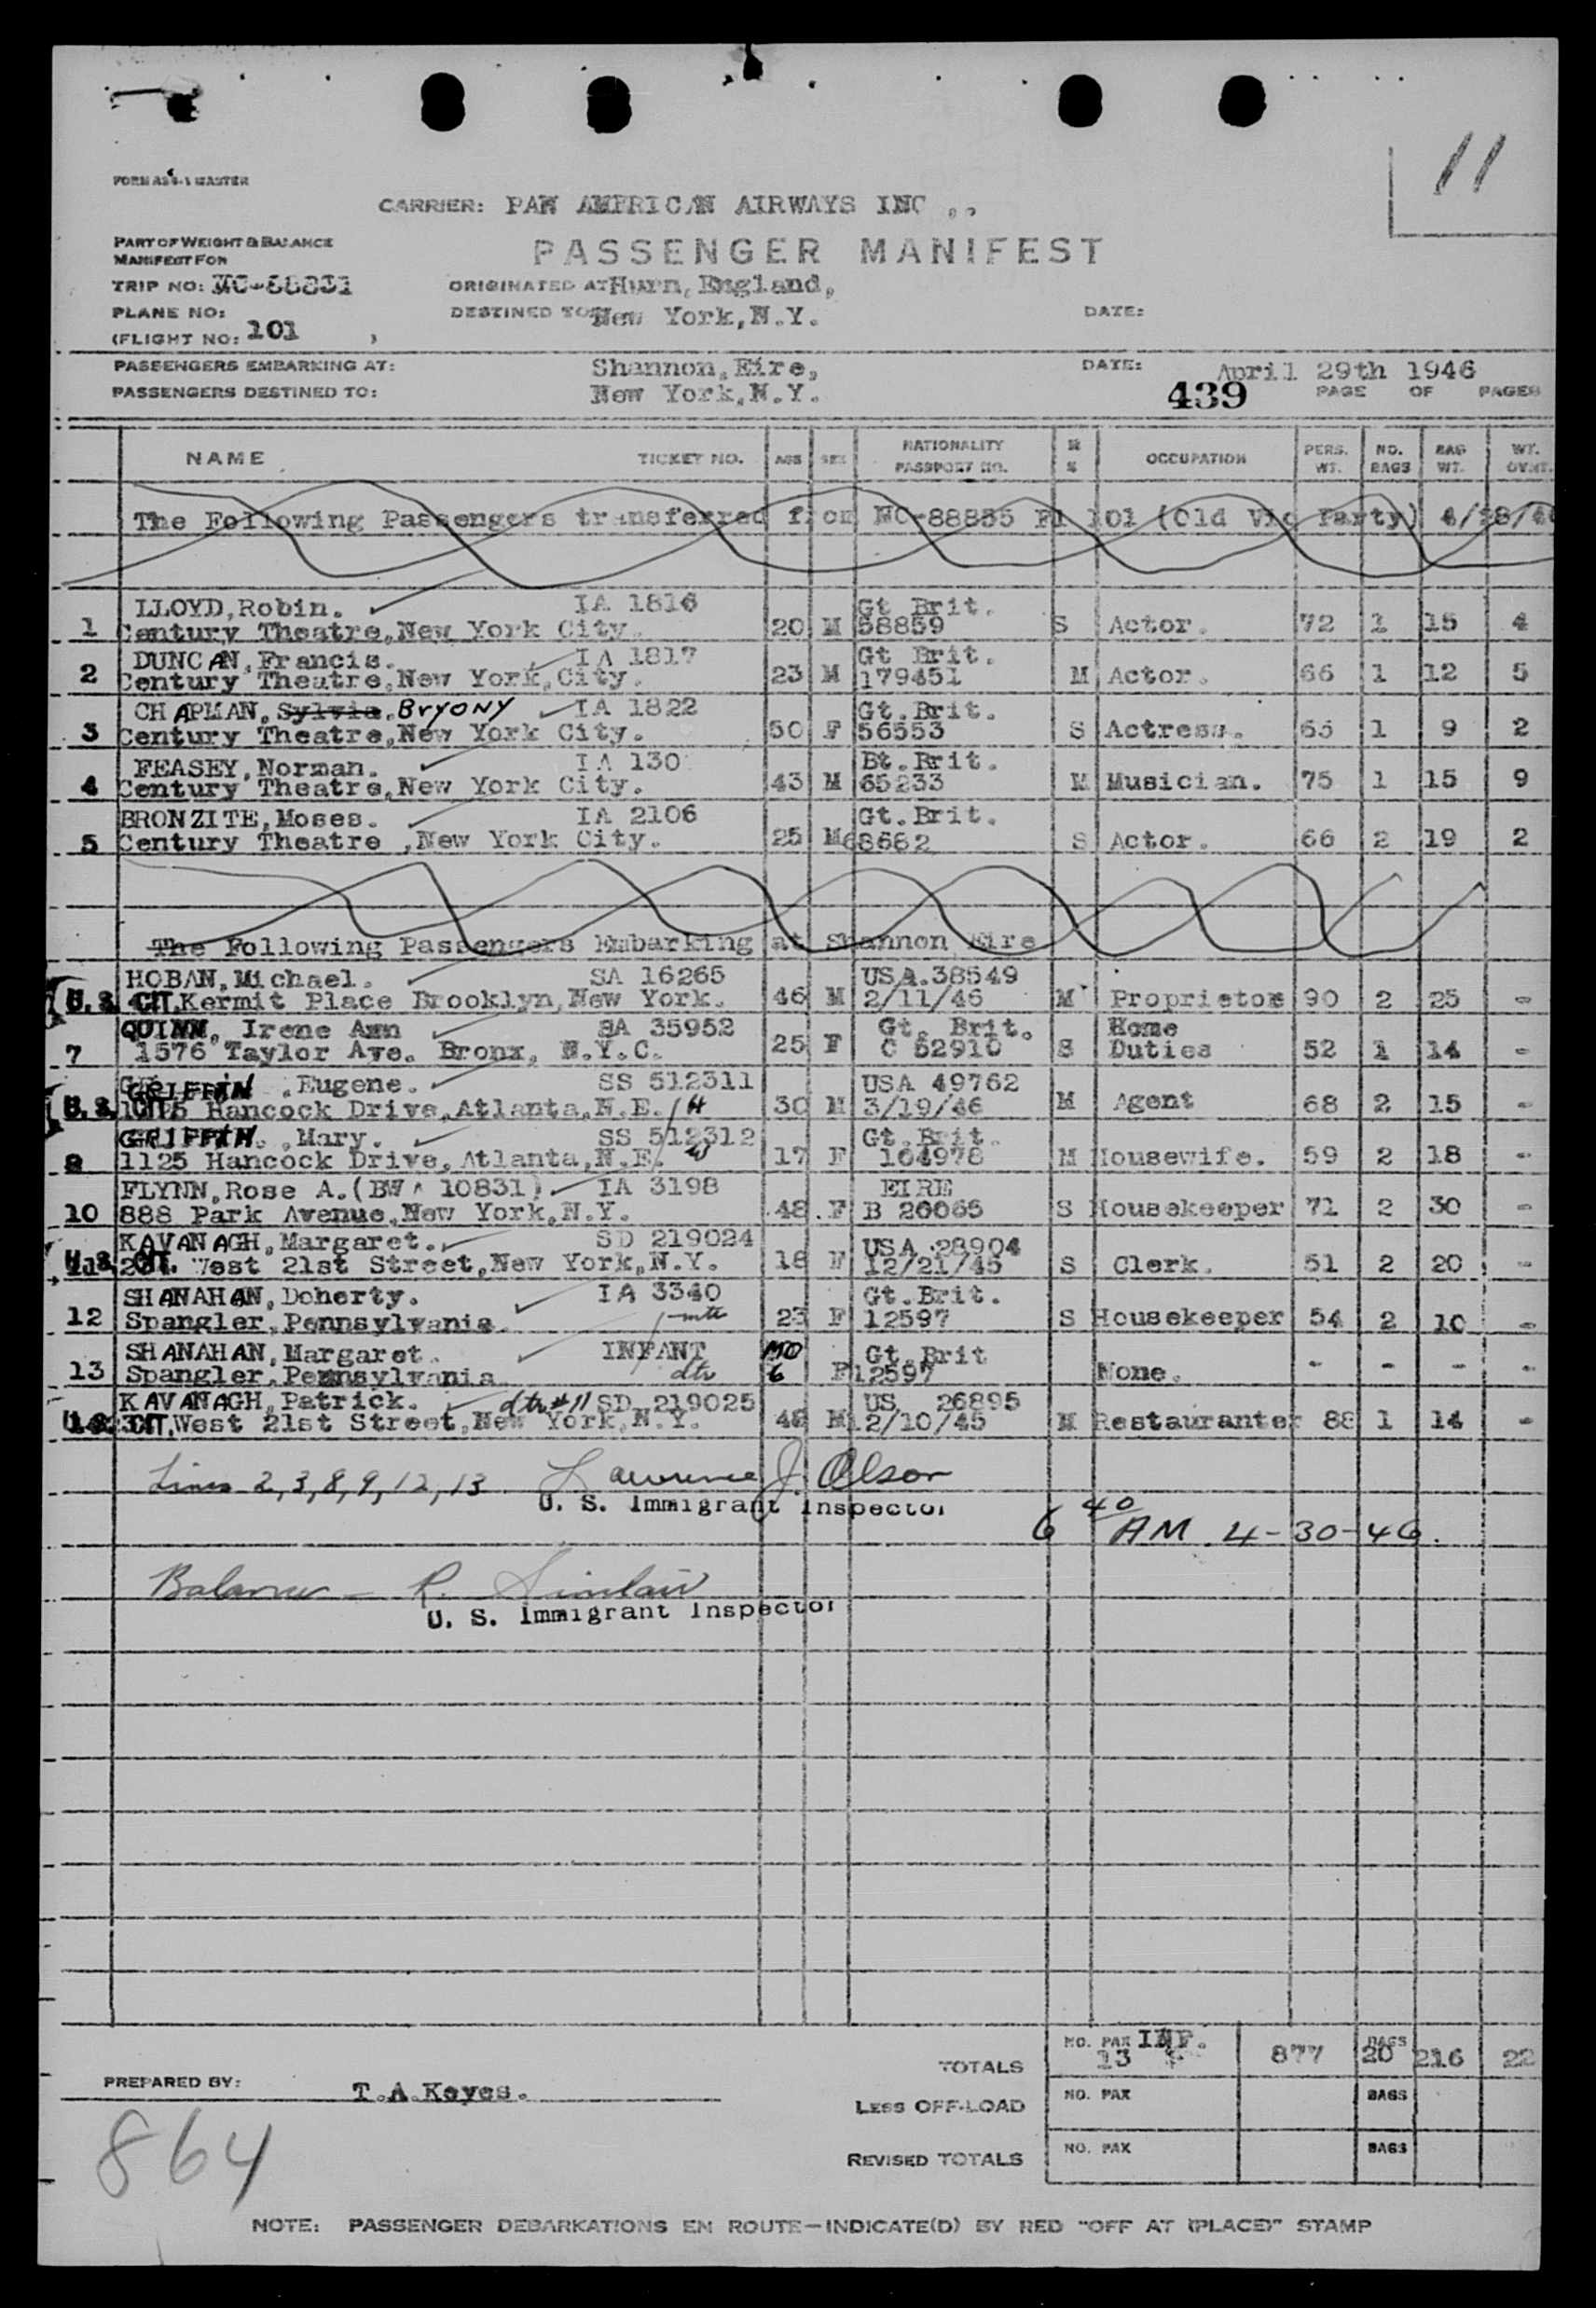 11
FORM AS4-1 MASTER
CARRIER: PAN AMERICAN AIRWAYS INC..
PART OF WEIGHT & BALANCE
MANIFEST FOR
PASSENGER MANIFEST
TRIP NO: NC-88831 ORIGINATED AT Hurn, England,
PLANE NO: DESTINED TO: New York, N.Y. DATE:
(FLIGHT NO: 101 )
PASSENGERS EMBARKING AT: Shannon, Eire, DATE: April 29th 1946
PASSENGERS DESTINED TO: New York, N.Y. 439 PAGE OF PAGES
NAME TICKET NO. AGE SEX NATIONALITY PASSPORT NO. M S OCCUPATION PERS. WT. NO. BAGS BAG WT. WT. OVWT.
The Following Passengers transferred from NC-88855 Fl 101 (Old Vic Party) 4/28/46
LLOYD, Robin. IA 1816 Gt Brit.
1 Century Theatre, New York City. 20 M 58859 S Actor. 72 1 15 4
DUNCAN, Francis. IA 1817 Gt Brit.
2 Century Theatre, New York, City. 23 M 179451 M Actor. 66 1 12 5
CHAPMAN, Sylvia, BRYONY IA 1822 Gt.Brit.
3 Century Theatre, New York City. 50 F 56553 S Actress. 65 1 9 2
FEASEY, Norman. IA 130 Bt.Brit.
4 Century Theatre, New York City. 43 M 65233 M Musician. 75 1 15 9
BRONZITE, Moses. IA 2106 Gt.Brit.
5 Century Theatre ,New York City. 25 M 68682 S Actor. 66 2 19 2
The Following Passengers Embarking at Shannon Eire
HOBAN, Michael. SA 16265 USA.38549
U.S. CIT. Kermit Place Brooklyn, New York. 46 M 2/11/46 M Proprietor 90 2 25 -
QUINN, Irene Ann SA 35952 Gt. Brit. Home
7 1576 Taylor Ave. Bronx, N.Y.C. 25 F C 52910 S Duties 52 1 14 -
GRIFFIN .Eugene. SS 512311 USA 49762
U.S. CIT. 1125 Hancock Drive, Atlanta, N.E. H 30 M 3/19/46 M Agent 68 2 15 -
GRIFFIN. .Mary. SS 512312 Gt.Brit.
9 1125 Hancock Drive, Atlanta, N.E. W 17 F 104978 M Housewife. 59 2 18 -
FLYNN, Rose A.(BWA 10831) IA 3198 EIRE
10 888 Park Avenue, New York, N.Y. 48 F B 26065 S Housekeeper 71 2 30 -
KAVANAGH, Margaret. SD 219024 USA 28904
U.S. CIT. West 21st Street, New York, N.Y. 18 F 12/21/45 S Clerk. 51 2 20 -
SHANAHAN, Doherty. IA 3340 Gt.Brit.
12 Spangler, Pennsylvania. mth 23 F 12597 S Housekeeper 54 2 10 -
SHANAHAN, Margaret. INFANT MO Gt.Brit
13 Spangler, Pennsylvania dtr 6 F 12597 None. - - - -
KAVANAGH, Patrick. dtr #11 SD 219025 US 26895
U.S. CIT. West 21st Street, New York, N.Y. 48 M 12/10/45 M Restauranter 88 1 14 -
Lines 2, 3, 8, 9, 12, 13 Lawrence J. Olson
U. S. Immigrant Inspector
6 40 AM 4-30-46.
Balance - R. Sinclair
U. S. Immigrant Inspector
TOTALS NO. PAX 13 INF. 877 BAGS 20 216 22
PREPARED BY: T.A.Keyes.
LESS OFF-LOAD NO. PAX BAGS
REVISED TOTALS NO. PAX BAGS
864
NOTE: PASSENGER DEBARKATIONS EN ROUTE—INDICATE(D) BY RED "OFF AT (PLACE)" STAMP